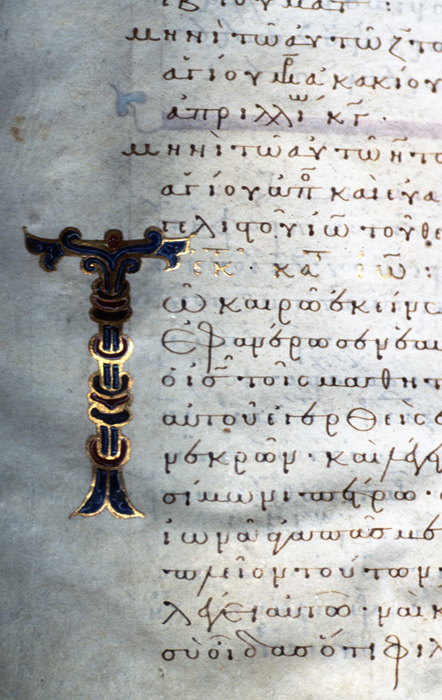 μηνὶ τῶ αὐτῶ ζ το
ἁγίου μρ ἀκακίου
ἀπριλλίω κγ·
μηνὶ τῶ αὐτῶ η το
ἁγίου ἀπο καὶ εὐα
γελιστοῦ ἰω τοῦ θε
ἐκ κατ ἰω :
Τῶ καιρῶ ἐκείνω
ἐφανέρωσεν ἑαυ
ὁ ις τοῖς μαθητ
αὐτοῦ ἐγερθεὶς
νεκρῶν· καὶ λέγει
σίμωνι πέτρω·
ἰωνᾶ ἀγαπᾶς με
πλεῖον τούτων·
λέγει αὐτῶ· ναὶ κ
σὺ οἶδας ὅτι φιλ